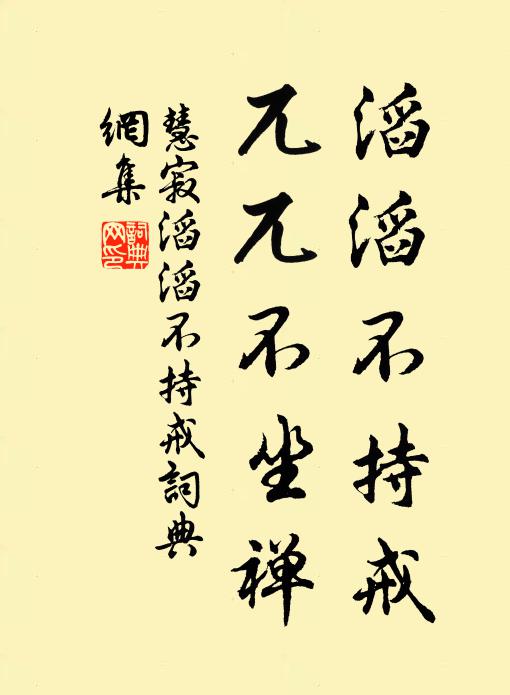 滔滔不持戒
兀兀不坐禅
慧寂滔滔不持戒詞典
網集
詞典网印